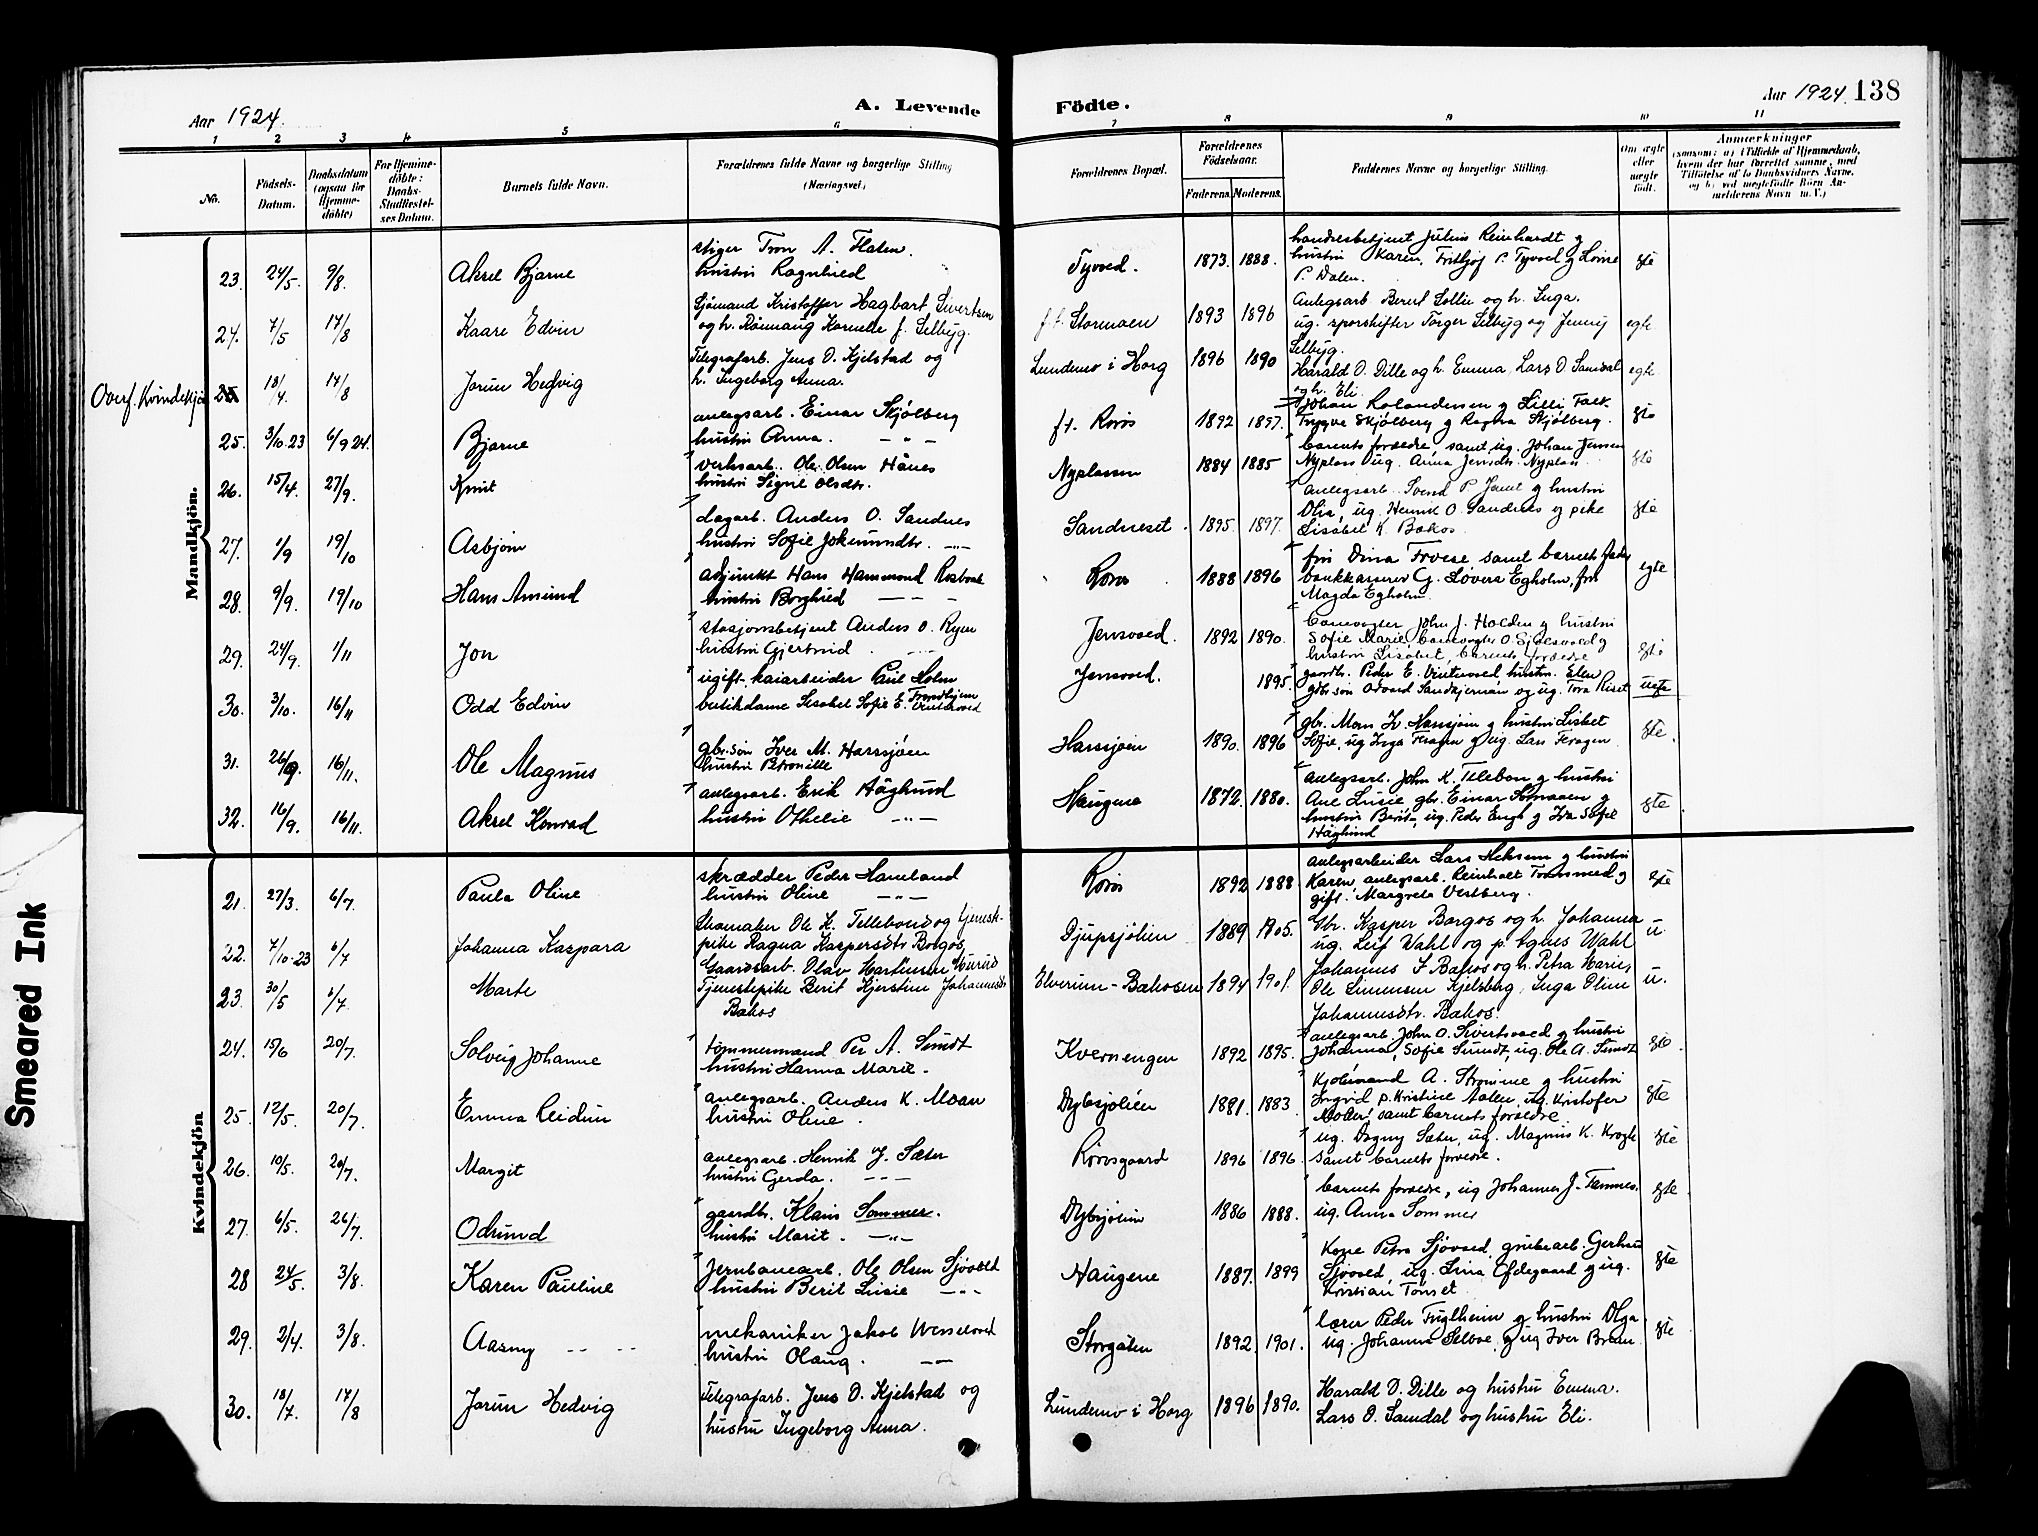 Aar 1924.
A. Levende
Födte.
Aar 1924. 138
1 2 3 4 5 6 7 8 9 10 11
No.
Födsels-
Datum.
Daabsdatum
(ogsaa for
Hjemme-
döbte)
For Hjemme-
döbte:
Daabs-
Stadfæstel-
ses Datum.
Barnets fulde Navn.
Forældrenes fulde Navne og borgerlige Stilling
(Næringsvei)
Forældrenes Bopæl.
Forældrenes
Födselsaar.
Faderens. Moderens.
Faddernes Navne og borgerlige Stilling.
Om ægte
eller
uægte
födt.
Anmærkninger
(saasom: a) i Tilfælde af Hjemmedaab,
hvem der har forrettet samme, med
Tilföielse af to Daabsvidners Navne,
og b) ved uægtefödte Börn An-
melderens Navn m. V.)
Mandkjön.
23. 24/5. 9/8. Aksel Bjarne
stiger Tron A. Flaten.
hustru Ragnhied
Tyvoed. 1873. 1888.
Julius Reinhardt g
hustru Karen, Frithjof P. Tyvoed g
P. Dalen.
gte
24. 7/5 17/8 Kaare Edvin
Sjömand Kristoffer Hagbart Sivertsen
og h. Rönnaug Kornelie f. Selbyg.
f.t. Stormoen 1893 1896
Anlegsarb. Bernt Sollie og h. Inga.
ug. sporskifter Torger Selbyg og Jenny
Selbyg.
egte
Overf. Kvindekjön 25 18/4. 17/8 Jorun Hedvig
Telegrafarb. Jens O. Kjelstad og
h. Ingeborg Anna.
Lundemo i Horg 1896 1890
Harald O. Dille og h. Emma, Lars O Samdal
og h. Eli
egte
25. 3/10.23 6/9 24. Bjarne
anlegsarb. Einar Skjölberg
hustru Anna. — " —
f.t. Röros 1892 1897.
Johan Rolandersen g Lilli Falk
Trygve Skjölberg g Ragna Skjölberg.
gte
26. 15/4. 27/9. Knut
verksarb. Ole Olsen Hånes
hustru Signe Olsdtr.
Nyplassen 1884 1885
barnets foreldre, samt ug. Johan Jensen
Nyplass ug. Anna Jensdtr. Nyplass
gte
27. 1/9 19/10 Asbjörn
dagarb. Anders O. Sandnes
hustru Sofie Jokumsdtr. — " —
Sandneset. 1895. 1897.
anlegsarb. Svend P. g hustru
Olia, ug. Henrik O. Sandnes g pike
Lisabet K. Bakos
gte
28. 9/9. 19/10 Hans Amund
adjunkt Hans Hammond Rosbach
hustru Borghied — " —
Röros 1888 1896
fru Dina samt barnets fader
bankkasserer G. Lovers Egholm, fru
Magda Egholm.
egte
29. 24/9. 1/11 Jon
stasjonsbetjent Anders O. Ryen
hustru Gjertrud — " —
Jensvoed. 1892 1890.
banevogter John J. Holden g hustru
Sofie Marie, banevogter O. g
hustru Lisabet, barnets foreldre
gte
30. 3/10. 16/11 Odd Edvin
ugift kaiarbeider Paul Holm Trondhjem
butikdame Lisabet Sofie E. Vintervoed
Jensvoed. 1895.
gaardbr. Peder E. Vintervoed, hustru Elen
gbr. sön Odvard Sandkjernan og ug. Tora Riset
uegte
31. 26/9. 16/11. Ole Magnus
gbr. sön Iver M. Harsjöen
hustru Petronille
Harsjöen 1890. 1896
gbr. Mons Iv. Harsjöen g hustru Lisbet
Sofie, ug Inga Feragen g ug. Lars Feragen
gte.
32. 16/9. 16/11. Aksel Konrad
anlegsarb. Erik Häglund
hustru Othelie — " —
Haugene 1872. 1880.
anlegsarb. John K. Tellebon g hustru
Ane Lusie gbr. Einar g
hustru Berit, ug. Peder Engh g Iva Sofie
Häglund
gte.
Kvindekjön
21. 27/3. 6/7. Paula Oline
skrædder Peder Hameland
hustru Oline — " —
Röros 1892 1888
anlegsarbeider Lars g hustru
Karen, anlegsarb. Reinholt g
gift. Margreta Vestberg.
gte
22. 7/10-23 6/7 Johanna Kaspara
Skomaker Ole K. Tellebond og tjeneste-
pike Ragna Kaspersdtr Borgos,
Djupsjölien 1889 1905.
Gbr. Kasper Borgos og h. Johanna
ug. Leif Wahl og p. Agnes Wahl
u.
23. 30/5 6/7. Marte
Gaardsarb. Olav Martinsen
Tjenestepike Berit Kjerstine Johannesdtr
Bakos
Elverum - Bakosen 1894 1901.
Johannes J Bakos og h. Petra Marie,
Ole Simensen Kjelsberg, Inga Oline
Johannesdtr. Bakos.
u.
24. 15/6 20/7. Solveig Johanne
tömmermand Per A. Sundt
hustru Hanna Marie.
Kvernengen 1892 1895.
anlegsarb. John O. Sivertsvoed g hustru
Johanna, Sofie Sundt, ug. Ole A. Sundt
gte.
25. 12/5. 20/7. Emma Reidun
anlegsarb. Anders K. Moan
hustru Oline.
Dybsjölien 1881. 1883.
Kjölmand A. Strömme g hustru
Ingrid p. Kristine Aalen, ug. Kristofer
samt barnets foreldre
gte
26. 10/5. 20/7. Margit
anlegsarb. Henrik J. Sæter
hustru Gerda. — " —
Rörosgaard 1896 1896.
ug. Dagny Sæter, ug. Magnus K. Krogh
samt barnets foreldre.
gte
27. 6/5. 26/7. Odrund
gaardbr. Klaus Sommer.
hustru Marit. — " —
Dybsjölien 1886 1888.
barnets foreldre, ug Johannes J. Tamnes.
ug. Anna Sommer
gte
28 24/5. 3/8. Karen Pauline
Jernbanearb. Ole Olsen Sjövold
hustru Berit Lusie — " —
Haugene 1887. 1899
Kone Petra Sjövoed, grubearb. Gerhard
Sjövoed, ug. Lina Ödegaard g ug.
Kristian Tönset
gte
29. 2/4. 3/8. Aasny — " —
mekaniker Jakob
hustru Olaug. — " —
Storgaten 1892. 1901.
lærer Peder Fuglheim g hustru Olga
ug. Johanne g ug Iver
gte
30. 18/7. 17/8 Jorun Hedvig
Telegrafarb. Jens O. Kjelstad og
hustru Ingeborg Anna.
Lundemo i Horg 1896 1890.
Harald O. Dille og hustru Emma.
Lars O. Samdal og hustru Eli.
Smeared Ink